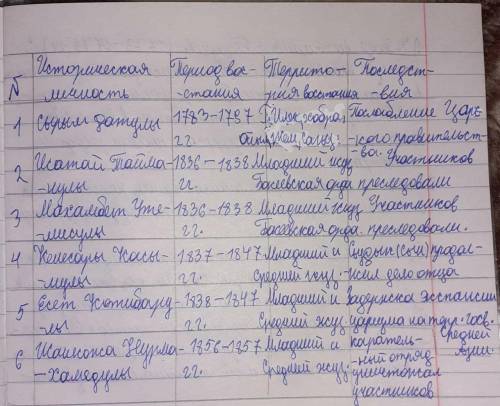 № Историческая личность Период вос-стания Террито-рия восстания Последст-вия
1 Сырым Датулы 1783-1797 гг. Послабление Царь-ского правительст-ва.
2 Исатай Тайма-нулы 1836-1838 гг. Младший жуз Букеевская орда Участников преследовали
3 Махамбет Уте-мисулы 1836-1838 гг. Младший жуз Букеевская орда. Участников преследовали.
4 Кенесары Касы-мулы 1837-1847 гг. Младший и Средний жуз. Сыздык (сын) продол-жил дело отца
5 Есет Котибару-лы 1838-1847 гг. Младший и Средний жуз. Задержка экспансии царизма на терр. госв. Средней Азии.
6 Жанхожа Нурма-хамедулы 1856-1857 гг. Младший и Средний жуз. каратель-ный отряд уничтожал участников